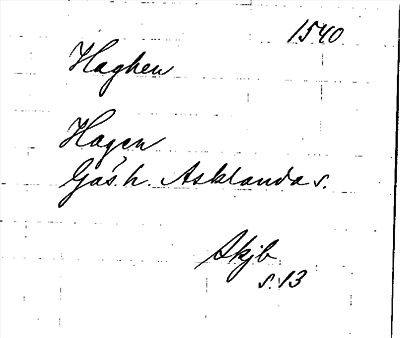 1540
Haghen
Hagen
Gäs. h. Asklanda s.
Skjb
s. 13